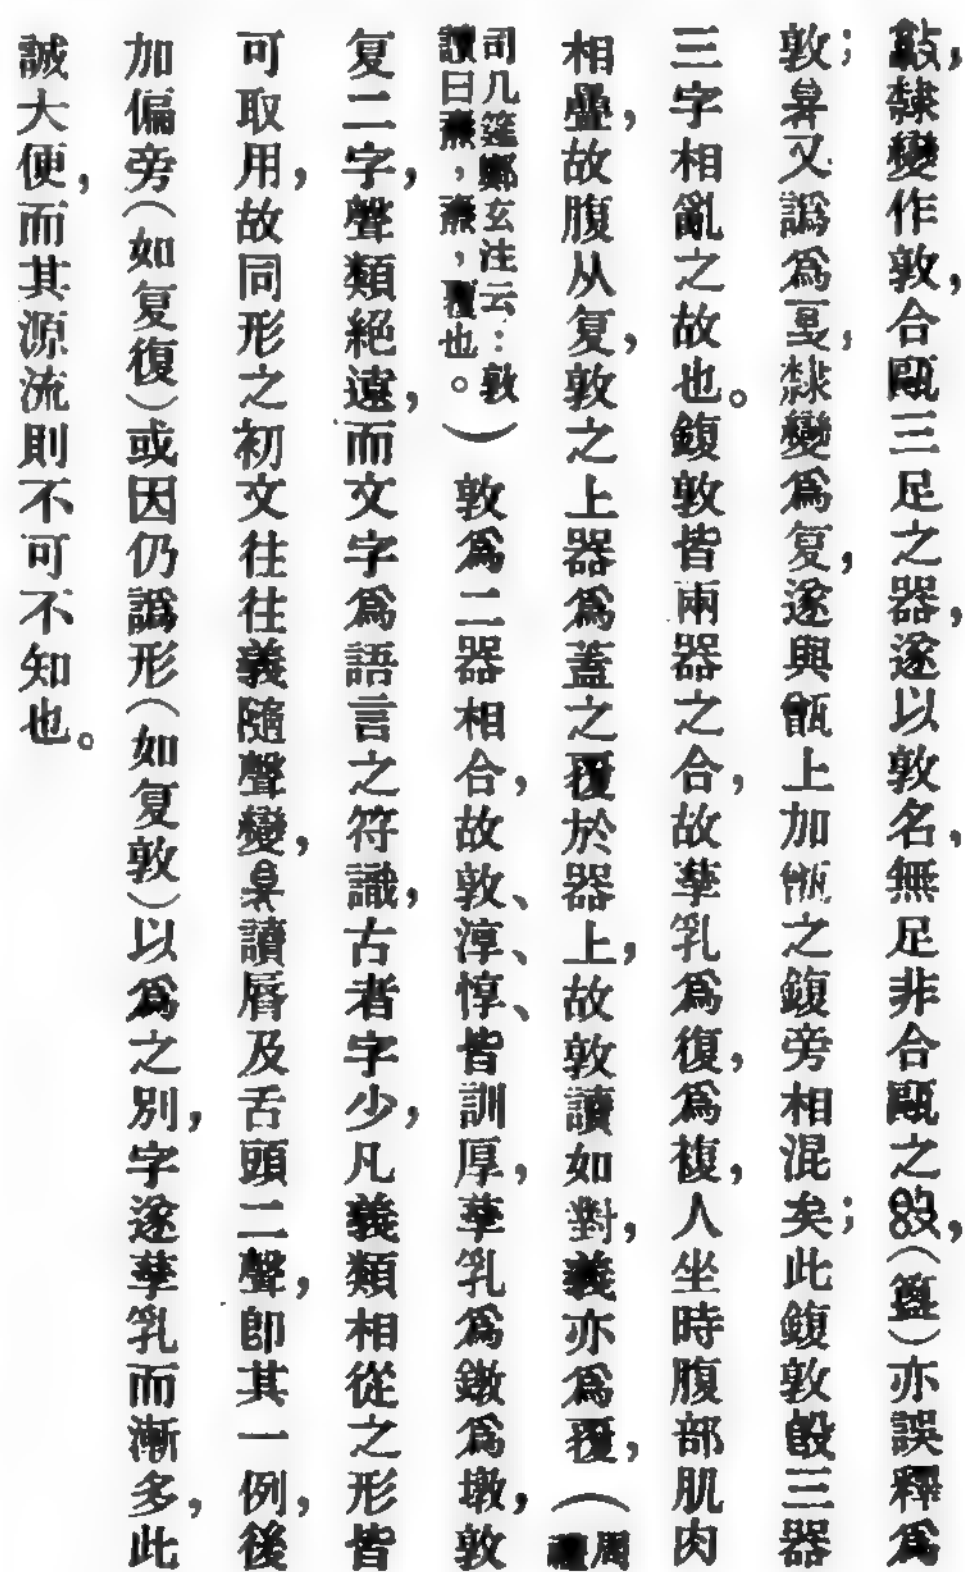 隸變作敦,合甌三足之器,遂以敦名,無足非合甌之(簋)亦誤釋爲
敦;又譌爲,隸變爲复,遂與甑上加之鍑旁相混矣;此鍑敦三器
三字相亂之故也。鍑敦皆兩器之合,故孳乳爲復,爲複,人坐時腹部肌肉
相疊,故腹从复,敦之上器爲蓋之覆於器上,故敦讀如對,義亦爲覆,(周禮
司几筵鄭玄注云:敦讀曰燾,燾,覆也。)敦爲二器相合,故敦、淳、惇、皆訓厚,孳乳爲鐓爲墩,敦
复二字,聲類絕遠,而文字爲語言之符識,古者字少,凡義類相從之形皆
可取用,故同形之初文往往義隨聲變,讀脣及舌頭二聲,卽其一例,後
加偏旁(如复復)或因仍譌形(如复敦)以爲之別,字遂孳乳而漸多,此
誠大便,而其源流則不可不知也。